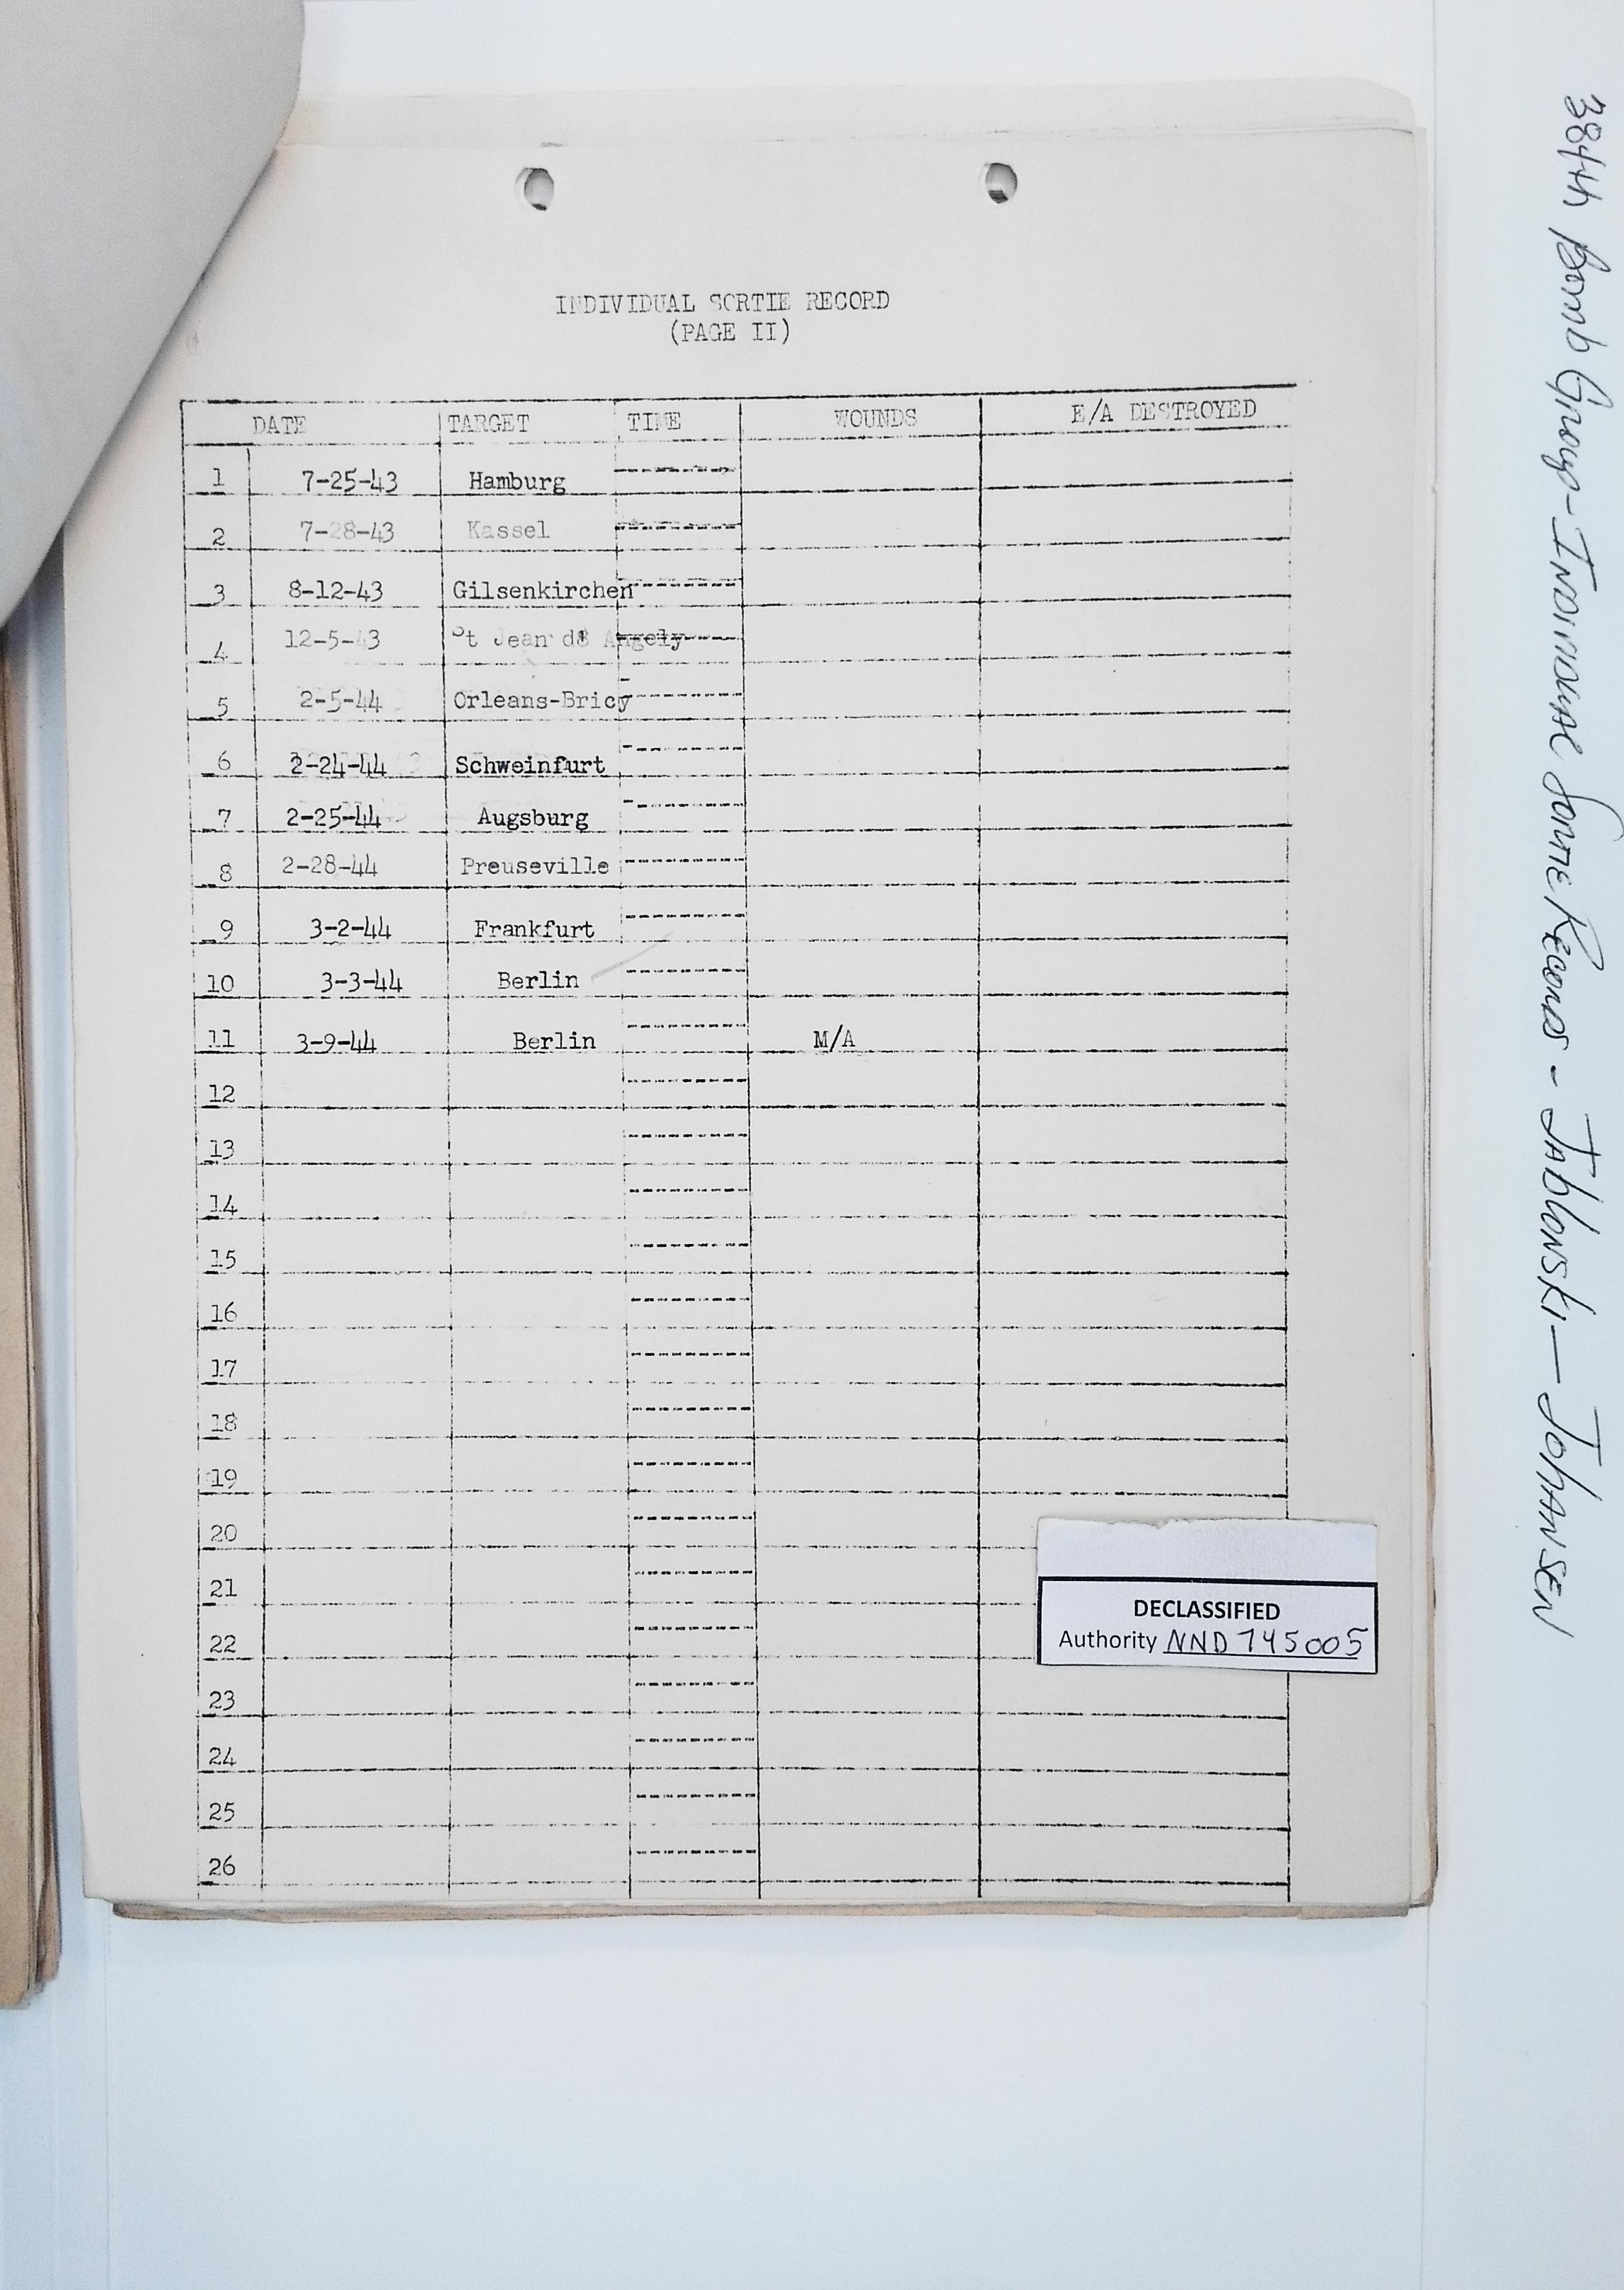 INDIVIDUAL SORTIE RECORD
(PAGE II)
DATE TARGET TIME WOUNDS E/A DESTROYED
1 7-25-43 Hamburg
2 7-28-43 Kassel
3 8-12-43 Gilsenkirchen
4 12-5-43 St Jean Angely
5 2-5-44 Orleans-Bricy
6 2-24-44 Schweinfurt
7 2-25-44 Augsburg
8 2-28-44 Preuseville
9 3-2-44 Frankfurt
10 3-3-44 Berlin
11 3-9-44 Berlin M/A
12
13
14
15
16
17
18
19
20
21
22
23
24
25
26
DECLASSIFIED
Authority NND 745005
384th Bomb Group - Individual Sortie Records - Jablonski — Johansen